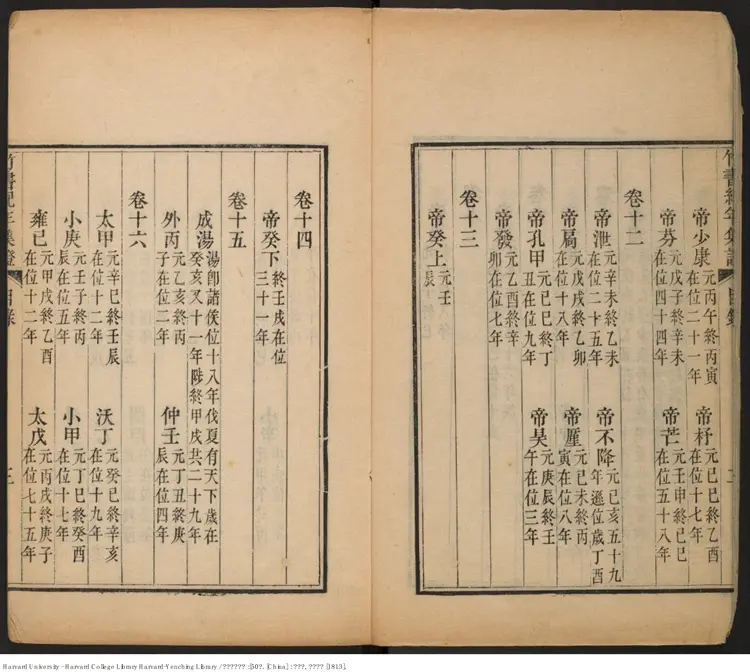 竹書紀年集證 目錄
帝少康 元丙午終丙寅在位二十一年 帝杼 元己巳終乙酉在位十七年
帝芬 元戊子終辛未在位四十四年 帝芒 元壬申終己巳在位五十八年
卷十二
帝泄 元辛未終乙未在位二十五年 帝不降 元己亥五十九年遜位歲丁酉
帝扃 元戊戌終乙卯在位十八年 帝厪 元己未終丙寅在位八年
帝孔甲 元己巳終丁丑在位九年 帝昊 元庚辰終壬午在位三年
帝發 元乙酉終辛卯在位七年
卷十三
帝癸上 元壬辰
卷十四
帝癸下 終壬戌在位三十一年
卷十五
成湯 湯卽諸侯位十八年伐夏有天下歲在癸亥又十一年陟終甲戌共二十九年
外丙 元乙亥終丙子在位二年 仲壬 元丁丑終庚辰在位四年
卷十六
太甲 元辛巳終壬辰在位十二年 沃丁 元癸巳終辛亥在位十九年
小庚 元壬子終丙辰在位五年 小甲 元丁巳終癸酉在位十七年
雍己 元甲戌終乙酉在位十二年 太戊 元丙戌終庚子在位七十五年
竹書紀年集證 目錄 三
Harvard University - Harvard College Library Harvard-Yenching Library / ?????? :[50?. [China] : ???, ???? [1813].